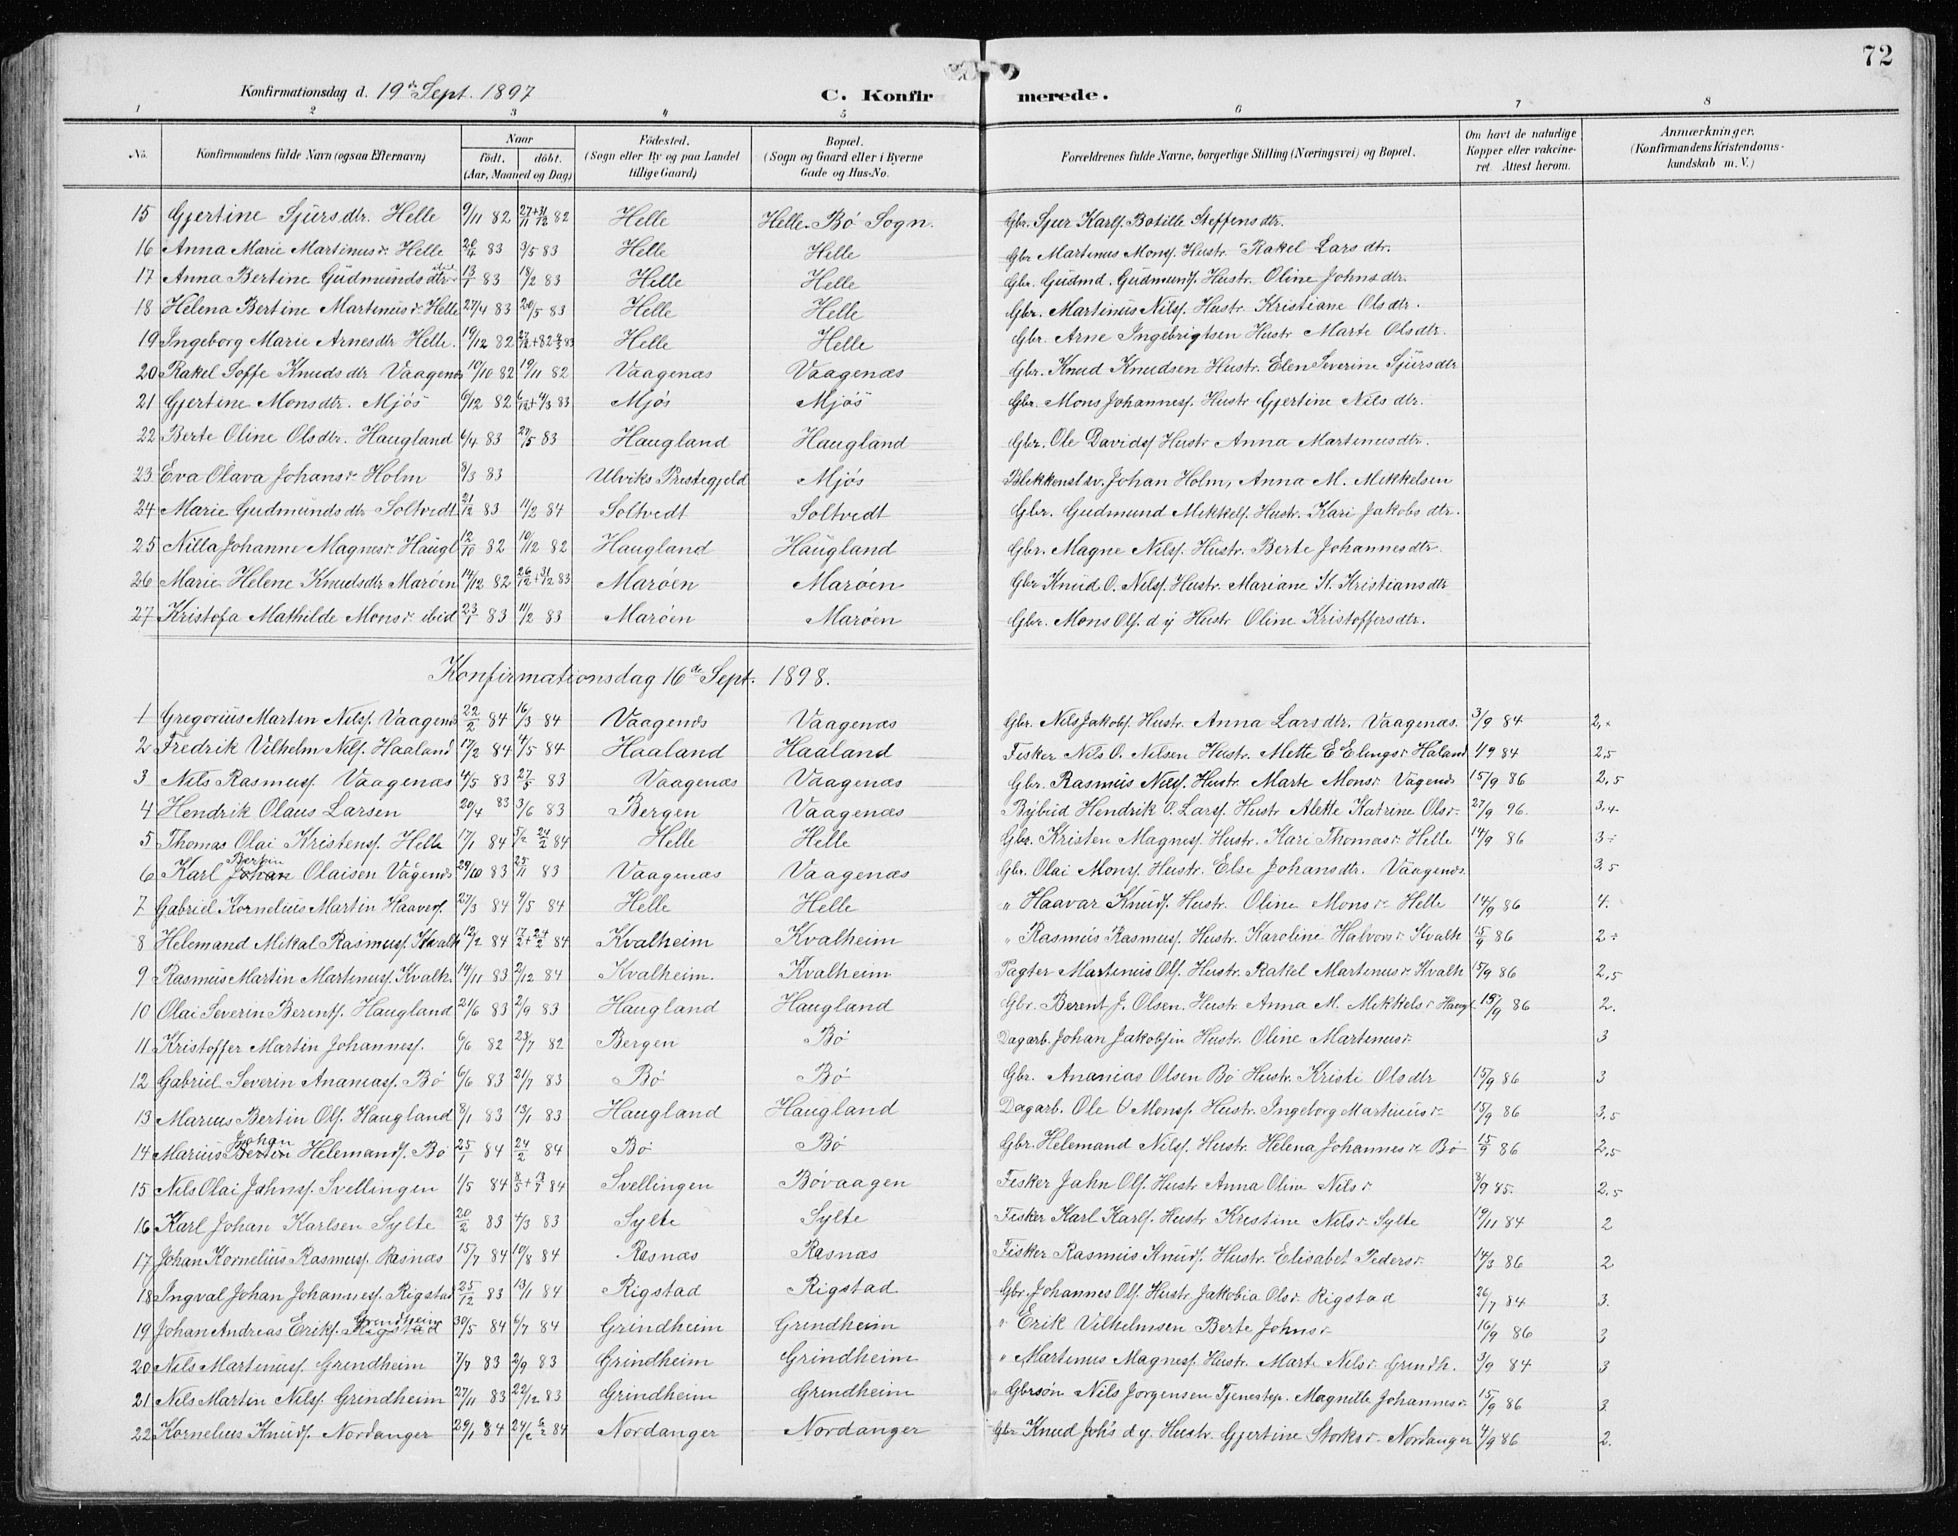 72
Konfirmationsdag d. 19de Sept. 1897
C. Konfirmerede.
1 2 3 4 5 6 7 8
No. Konfirmandens fulde Navn (ogsaa Efternavn) Naar født. døbt. (Aar, Maaned og Dag) Fødested. (Sogn eller By og paa Landet tillige Gaard) Bopæl. (Sogn og Gaard eller i Byerne Gade og Hus-No. Forældrenes fulde Navne, borgerlige Stilling (Næringsvei) og Bopæl. Om havt de naturlige Kopper eller vakcineret. Attest herom. Anmærkninger. (Konfirmandens Kristendomskundskab m. V.)
15 Gjertine Sjursdtr. Helle 9/11 82 27/11+31/12 82 Helle Helle. Bö Sogn. Gbr. Sjur Karls. Botille Steffensdtr.
16 Anna Marie Martinusr. Helle 20/4 83 3/5 83 Helle Helle Gbr Martinus Mons. Hustr. Rakel Larsdtr.
17 Anna Bertine Gudmundsdtr. ibid 13/1 83 18/2 83 Helle Helle Gbr. Gudmd. Gudmunds. Hustr. Oline Johnsdtr.
18 Helena Bertine Martinusr. Helle 27/4 83 20/5 83 Helle Helle Gbr. Martinus Nils. Hustr. Kristiane Olsdtr.
19 Ingeborg Marie Arnesdtr Helle. 19/12 82 27/12+82 4/3 83 Helle Helle Gbr. Arne Ingebrigtsen Hustr Marte Olsdtr.
20 Rakel Soffe Knudsdtr Vaagenes 19/10 82 19/11 82 Vaagenæs Vaagenæs Gbr. Knud Knudsen Hustr. Elen Severine Sjursdtr
21 Gjertine Monsdtr. Mjös 6/12 82 6/12+4/3 83 Mjös Mjös Gbr. Mons Johannes. Hustr Gjertine Nilsdtr.
22 Berte Oline Olsdtr. Haugland 6/4 83 27/5 83 Haugland Haugland Gbr. Ole Davids. Hustr Anna Martinusdtr.
23. Eva Olava Johansr. Holm 8/3 83 Ulviks Prestegjeld Mjös Blikkenslsv. Johan Holm, Anna M. Mikkelsen
24 Marie Gudmundsdtr Soltvedt 21/12 83 11/2 84 Soltvedt Soltvedt Gbr. Gudmund Mikkels. Hustr. Kari Jakobsdtr.
25 Nilla Johanne Magnesr. Haugl 12/10 82 10/12 82 Haugland Haugland Gbr. Magne Nils. Hustr. Berte Johannesdtr.
26 Marie Helene Knudsdtr Marøen 14/12 82 26/12+31/12 83 Marøen Marøen Gbr Knud O. Nils. Hustr. Mariane K. Kristiansdtr
27 Kristofa Mathilde Monsr. ibid 23/1 83 11/2 83 Marøen Marøen Gbr. Mons Ols. d y Hustr Oline Kristoffersdtr.
Konfirmationsdag 16de Sept. 1898.
1 Gregorius Martin Nils. Vaagenes 22/2 84 16/3 84 Vaagenæs Vaagenæs Gbr. Nils Jakobs. Hustr. Anna Larsdtr. Vaagenæs. 3/9 84 2,÷
2 Fredrik Vilhelm Nils. Haaland 17/2 84 4/5 84 Haaland Haaland Fisker Nils O. Nilsen Hustr. Mette E Elingsr Haland 1/9 84 2,5
3 Nils Rasmus. Vaagenæs 4/5 83 27/5 83 Vaagenæs Vaagenæs Gbr. Rasmus Nils. Hustr. Marte Monsr. Vågenes 15/9 86 2,5
4 Hendrik Olaus Larsen 20/4 83 3/6 83 Bergen Vaagenæs Bybud Hendrik O. Lars. Hustr Alette Katrine Olsr. 27/9 96. 3,4
5 Thomas Olai Kristens. Helle 17/1 84 5/2 24/2 84 Helle Helle Gbr. Kristen Magnes. Hustr. Kari Thomasr Helle 14/9 86 3÷
6 Karl Johan Bertin Olaisen Vågenes 29/10 83 25/11 83 Vaagenæs Vaagenæs Gbr. Olai Mons. Hustr. Else Johansdtr. Vågenes. 3,5
7 Gabriel Kornelius Martin Haavars. 27/3 84 4/5 84 Helle Helle " Haavar Knuds. Hustr. Oline Monsr. Helle 14/9 86 4.
8 Helemand Mikal Rasmus. Kvalh 12/2 84 17/2+24/2 84 Kvalheim Kvalheim " Rasmus Rasmus. Hustr. Karoline Halvorsr Kvalh 15/9 86 2÷
9 Rasmus Martin Martinus. Kvalh. 14/11 83 2/12 84 Kvalheim. Kvalheim Pagter Martinus Ols. Hustr. Rakel Martinusr. Kvalh 15/9 86 2,5
10 Olai Severin Berents. Haugland 21/6 83 2/9 83 Haugland Haugland Gbr. Berent J. Olsen. Hustr Anna M. Mikkelsr Haugl. 15/9 86 2.
11 Kristoffer Martin Johannes. 6/6 82 23/7 82 Bergen Bö Dagarb. Johan Jakobsen Hustr. Oline Martinusr. 3
12 Gabriel Severin Ananias. Bö 6/6 83 21/7 83 Bö Bö Gbr. Ananias Olsen Bö Hustr. Kristi Olsdtr 15/9 86 3
13 Marius Bertin Ols. Haugland 8/1 83 13/1 83 Haugland Haugland Dagarb. Ole O Mons. Hustr. Ingeborg Martinusr. 15/9 86 3,5
14 Marius Bertin Johan Helemands. Bö 25/1 84 24/2 84 Bö Bö Gbr. Helemand Nils. Hustr. Helena Johannesr. Bö 15/9 86 2,5
15 Nils Olai Jahns. Svellingen 1/5 84 8/5+13/7 84 Svellingen Bövaagen Fisker Jahn Ols. Hustr Anna Oline Nilsr 3/9 85. 2,5
16 Karl Johan Karlsen Sylte 20/2 83 4/3 83 Sylte Sylte Fisker Karl Karls. Hustr Kristine Nilsr. Sylte 19/11 84 2
17 Johan Kornelius Rasmus. Rasnæs 15/7 84 10/8 84 Rasnæs Rasnæs Fisker Rasmus Knuds. Hustr. Elisabet Pedersr. 14/3 86 2
18 Ingval Johan Johannes. Rigstad 25/12 83 13/1 84 Rigstad Rigstad Gbr. Johannes Ols. Hustr. Jakobia Olsr. Rigstad 26/7 84 3.
19 Johan Andreas Eriks. Rigstad Grindheim 30/5 84 6/7 84 Grindheim Grindheim " Erik Vilhelmsen Berte Johnsr 16/9 86 3
20 Nils Martinus. Grindheim 7/7 83 2/9 83 Grindheim Grindheim " Martinus Magnes. Hustr. Marte Nilsr. Grindh. 3/9 84 3
21 Nils Martin Nils. Grindheim 27/11 83 22/12 83 Grindheim Grindheim " Gbrsön Nils Jorgensen Tjenestep. Magnille Johannesr. 15/9 86 3
22 Kornelius Knuds. Nordanger 29/1 84 24/2 84 Nordanger Nordanger Gbr Knud Johs d.y. Hustr. Gjertine Storksr. Nordanger 4/9 86 2.